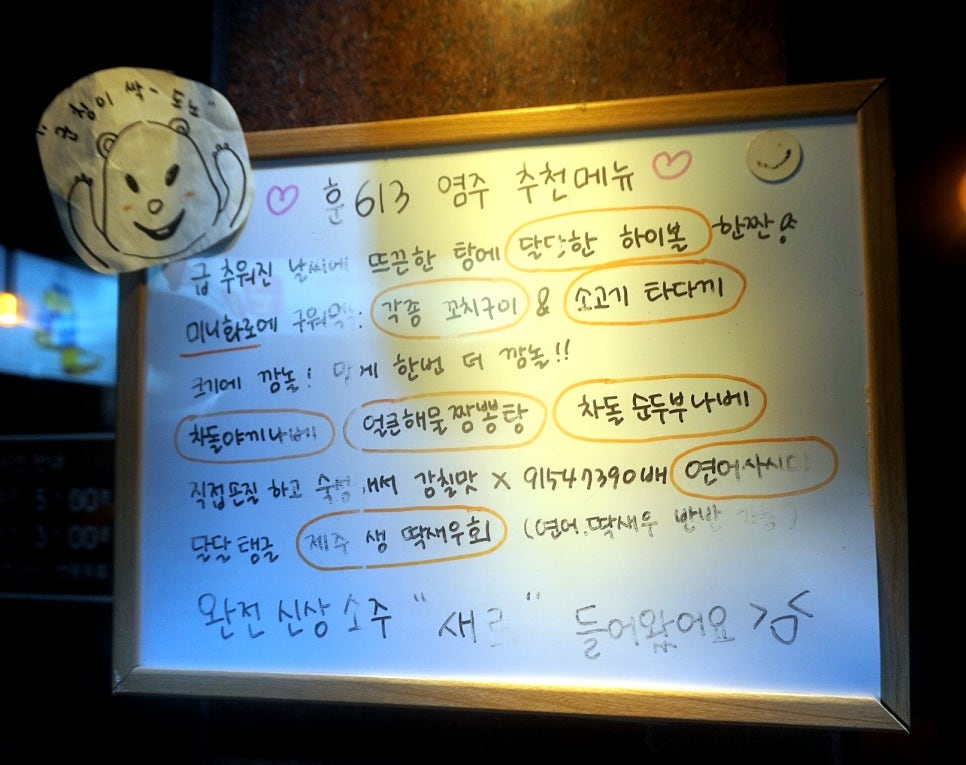 ♡ 훈613 염주 추천메뉴 ♡
급 추워진 날씨에 뜨끈한 탕에 달달한 하이볼 한짠!
미니화로에 구워먹는 각종 꼬치구이 & 소고기 타다끼
크기에 깜놀! 맛에 한번 더 깜놀!!
차돌야끼나베 얼큰해물짬뽕탕 차돌순두부나베
직접손질 하고 숙성해서 감칠맛 × 91547390배 연어사시미
달달탱글 제주 생 딱새우회 (연어,딱새우 반반 가능)
완전신상소주 "새로" 들어왔어요 >ㅁ<